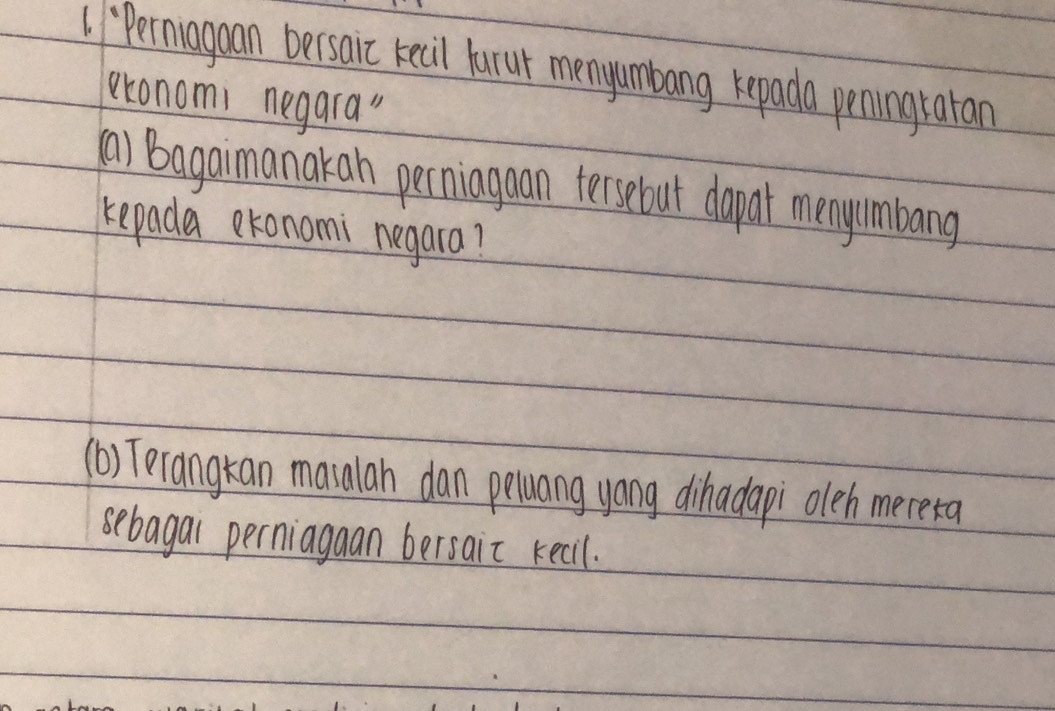 1. "Perniagaan bersaiz kecil turut menyumbang kepada peningkatan
ekonomi negara"
(a) Bagaimanakah perniagaan tersebut dapat menyumbang
kepada ekonomi negara?
(b) Terangkan masalah dan peluang yang dihadapi oleh mereka
sebagai perniagaan bersaiz kecil.